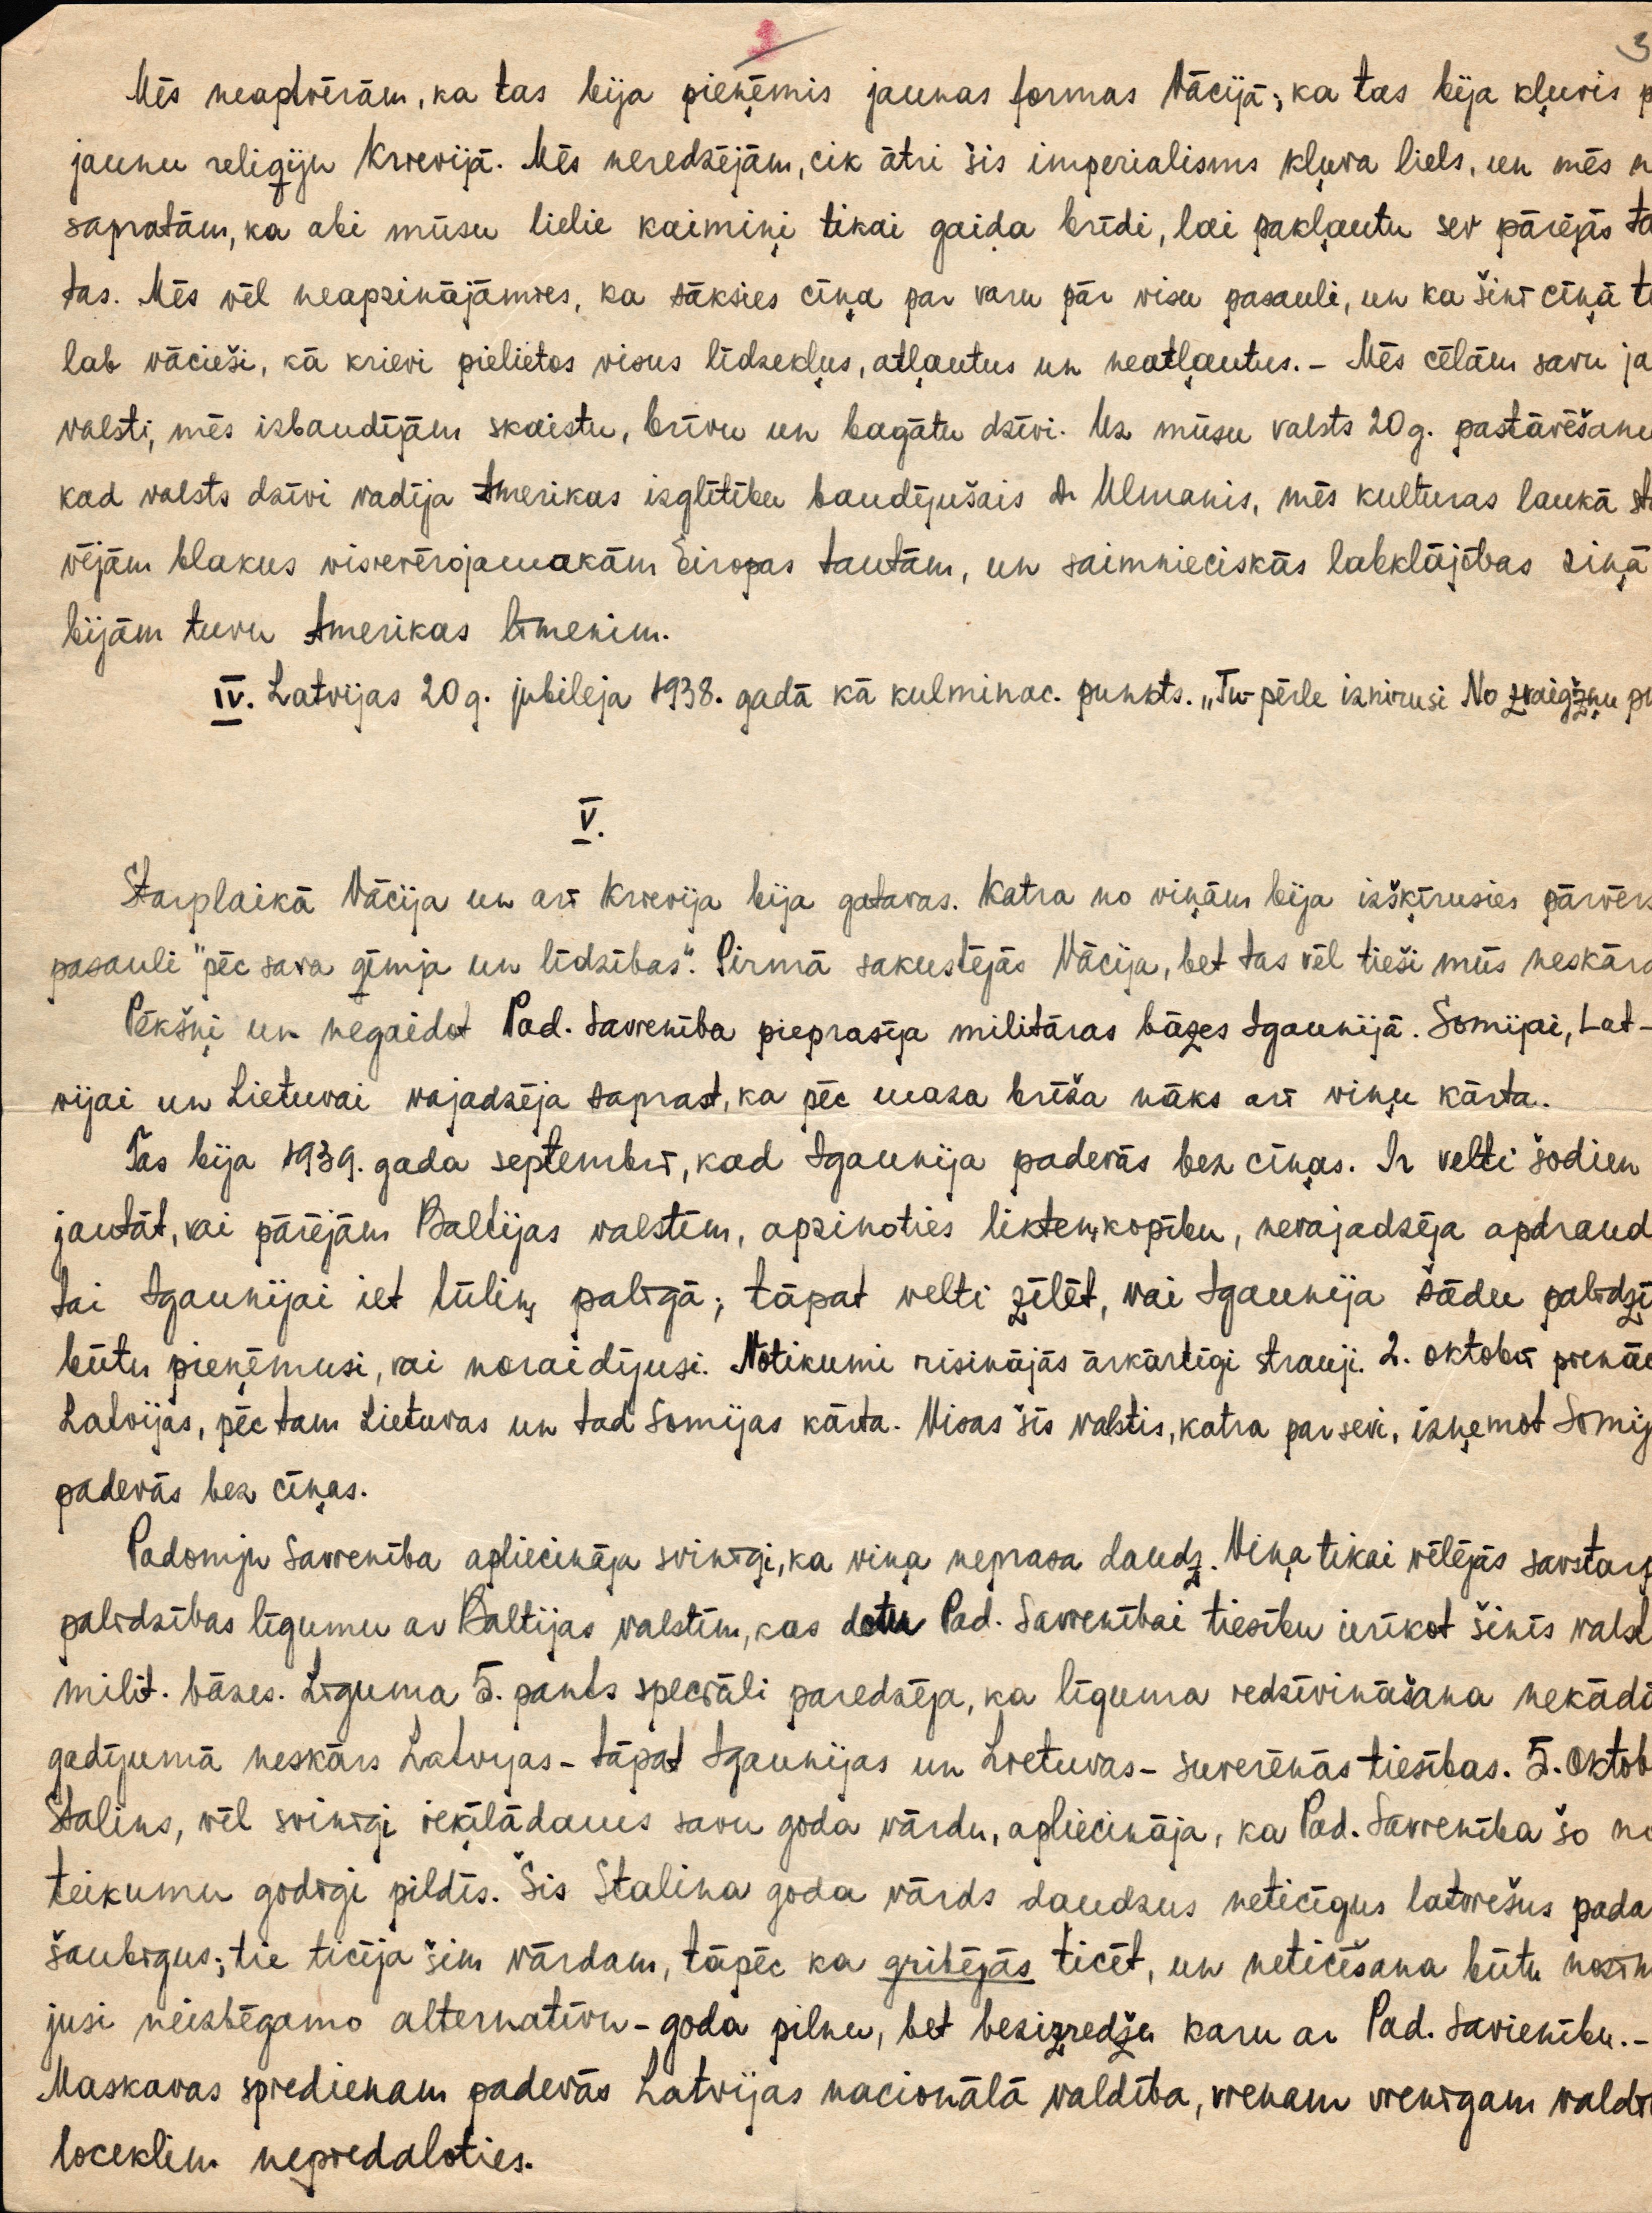 3 3
Mēs neaptvērām, ka tas bija pieņēmis jaunas formas Vācijā; ka tas bija kļuvis p
jaunu reliģiju Krievijā. Mēs neredzējām, cik ātri šis imperialisms kļuva liels, un mēs n
sapratām, ka abi mūsu lielie kaimiņi tikai gaida brīdi, lai pakļautu sev pārējās ta
tas. Mēs vēl neapzinājāmies, ka sāksies cīņa par varu pār visu pasauli, un ka šinī cīņā t
lab vācieši, kā krievi pielietos visus līdzekļus, atļautus un neatļautus. – Mēs cēlām savu ja
valsti, mēs izbaudījām skaistu, brīvu un bagātu dzīvi. Uz mūsu valsts 20 g. pastāvēšanu
kad valsts dzīvi vadīja Amerikas izglītību baudījušais dr Ulmanis, mēs kulturas laukā stā
vējām blakus visievērojamakām Eiropas tautām, un saimnieciskās labklājības ziņā
bijām tuvu Amerikas līmenim.
IV. Latvijas 20 g. jubileja 1938. gadā kā kulminac. punkts. „Tu-pērle iznirusi No zvaigžņu pu
V.
Starplaikā Vācija un arī Krievija bija gatavas. Katra no viņām bija izšķīrusies pārvērs
pasauli "pēc sava ģīmja un līdzības". Pirmā sakustējās Vācija, bet tas vēl tieši mūs neskāra
Pēkšņi un negaidot Pad. Savienība pieprasīja militāras bāzes Igaunijā. Somijai, Lat-
vijai un Lietuvai vajadzēja saprast, ka pēc maza brīža nāks arī viņu kārta.
Tas bija 1939. gada septembrī, kad Igaunija padevās bez cīņas. Ir velti šodien
jautāt, vai pārējām Baltijas valstīm, apzinoties likteņkopību, nevajadzēja apdraud
tai Igaunijai iet tūliņ palīgā; tāpat velti zīlēt, vai Igaunija šādu palīdzī
būtu pieņēmusi, vai noraidījusi. Notikumi risinājās ārkārtīgi strauji. 2. oktobrī pienāc
Latvijas, pēc tam Lietuvas un tad Somijas kārta. Visas šīs valstis, katra par sevi, izņemot Somij
padevās bez cīņas.
Padomju Savienība apliecināja svinīgi, ka viņa neprasa daudz. Viņa tikai vēlējās savstarp
palīdzības līgumu ar Baltijas valstīm, kas dotu Pad. Savienībai tiesību ierīkot šinīs valst
milit. bāzes. Līguma 5. pants speciāli paredzēja, ka līguma iedzīvināšana nekādā
gadījumā neskārs Latvijas – tāpat Igaunijas un Lietuvas – suverēnās tiesības. 5. oktob
Staļins, vēl svinīgi ieķīlādams savu goda vārdu, apliecināja, ka Pad. Savienība šo no
teikumu godīgi pildīs. Šis Staļina goda vārds daudzus neticīgus latviešus pada
šaubīgus; tie ticēja šim vārdam, tāpēc ka gribējās ticēt, un neticēšana būtu nozīm
jusi neizbēgamo alternatīvu – goda pilnu, bet bezizredžu karu ar Pad. Savienību. –
Maskavas spiedienam padevās Latvijas nacionālā valdība, vienam vienīgam valdīb
loceklim nepiedaloties.